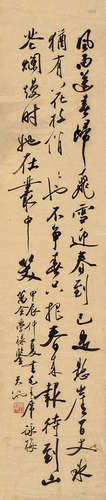 風雨送春歸飛雪迎春到已是懸崖百丈冰
猶有花枝俏〻也不爭春只把春來報待到山
花爛漫時她在叢中笑
甲辰仲夏書毛主席詠梅